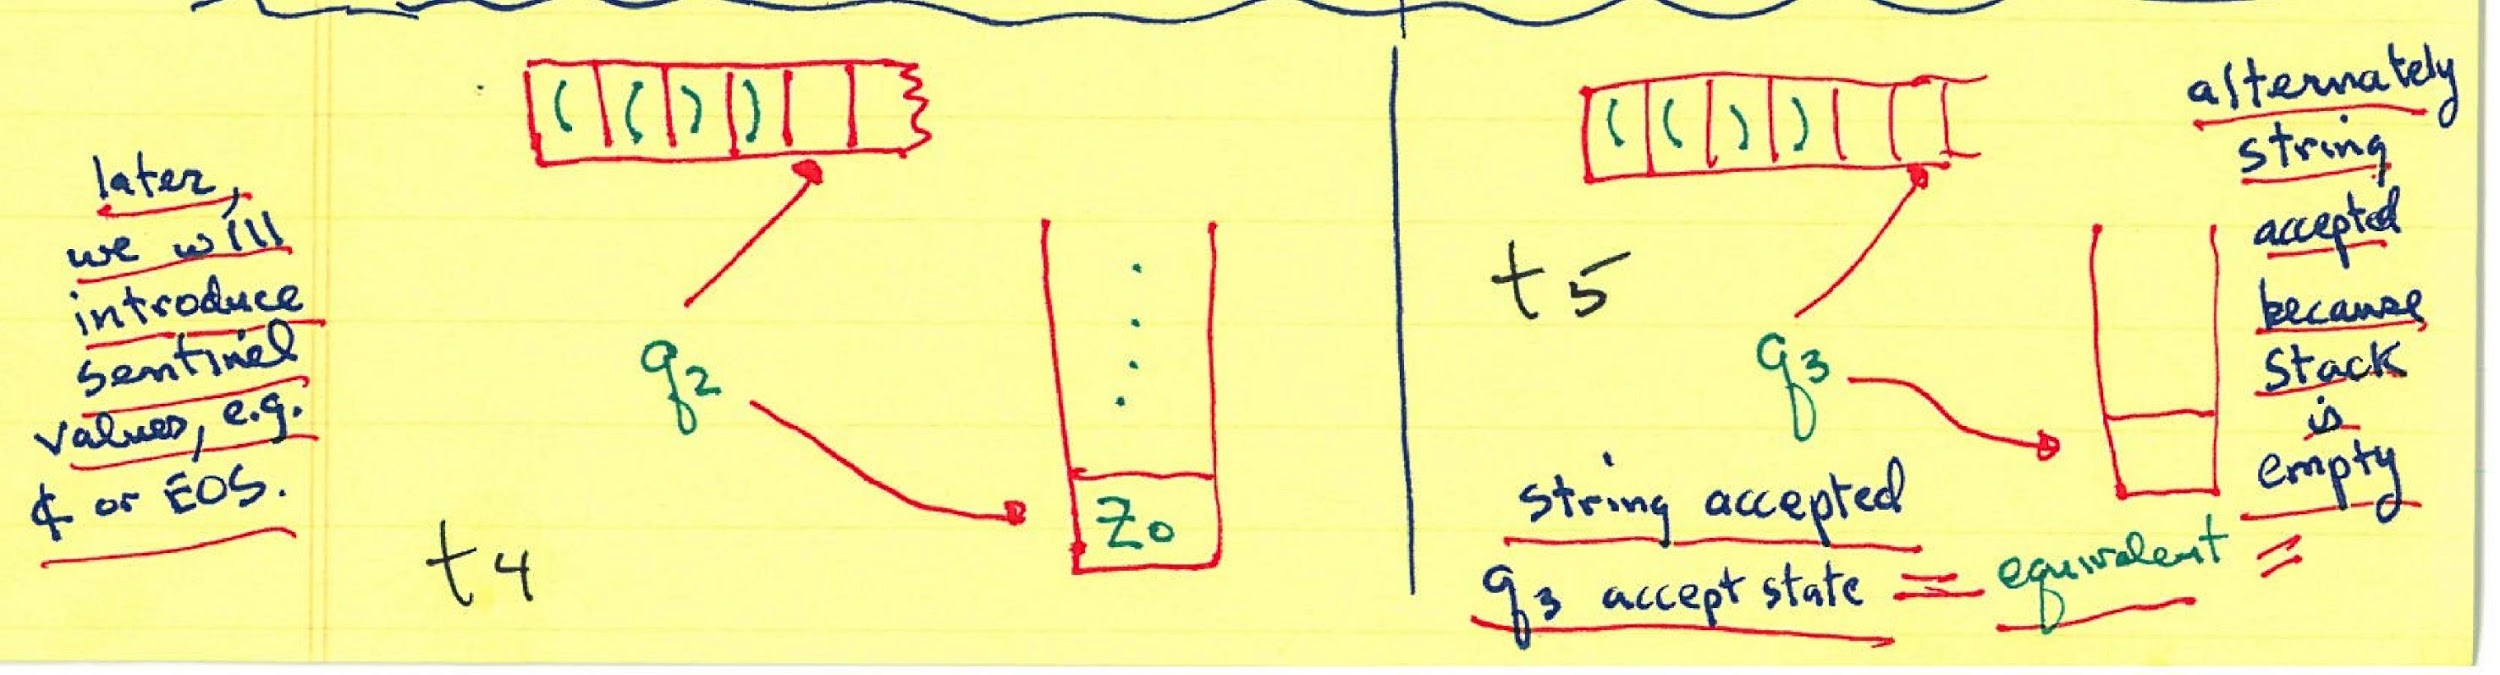 later,
we will
introduce
sentinel
values, e.g.
¢ or EOS.
( ( ) )
q2
Z0
t4
( ( ) )
t5
q3
string accepted
q3 accept state = equivalent =
alternately
string
accepted
because
stack
is
empty